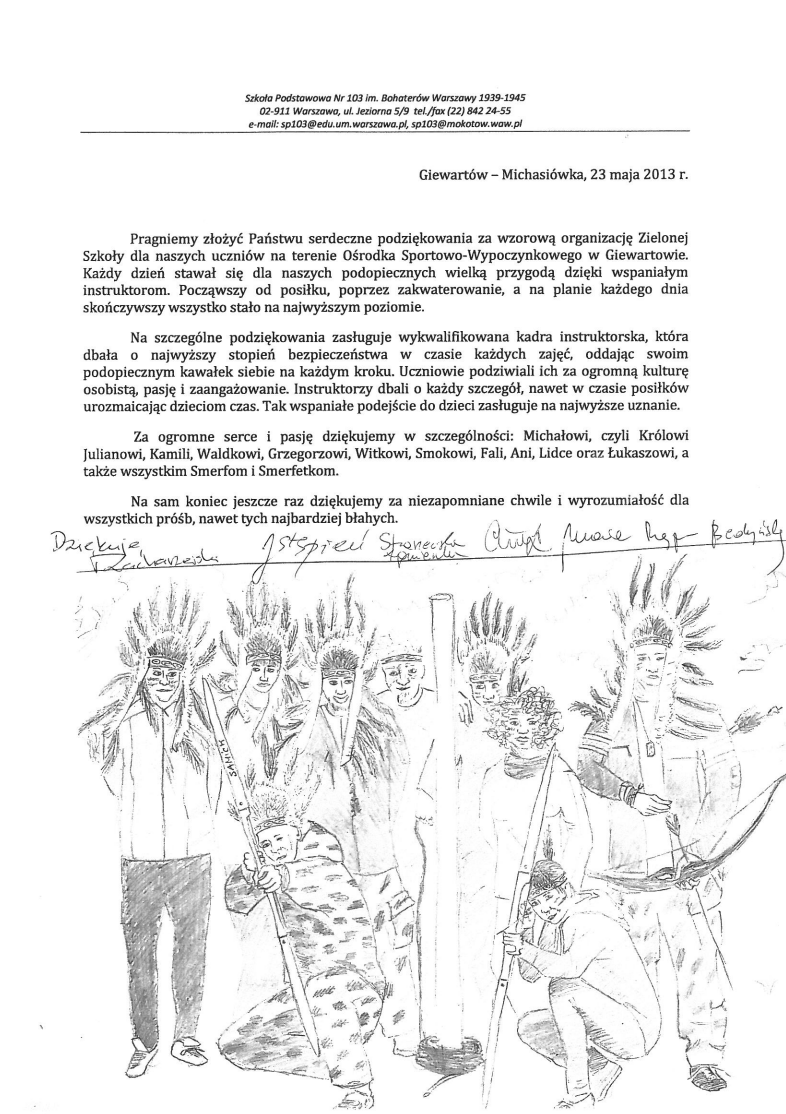 Szkoła Podstawowa Nr 103 im. Bohaterów Warszawy 1939-1945
02-911 Warszawa, ul. Jeziorna 5/9 tel./fax (22) 842 24-55
e-mail: sp103@edu.um.warszawa.pl, sp103@mokotow.waw.pl
Giewartów – Michasiówka, 23 maja 2013 r.
Pragniemy złożyć Państwu serdeczne podziękowania za wzorową organizację Zielonej
Szkoły dla naszych uczniów na terenie Ośrodka Sportowo-Wypoczynkowego w Giewartowie.
Każdy dzień stawał się dla naszych podopiecznych wielką przygodą dzięki wspaniałym
instruktorom. Począwszy od posiłku, poprzez zakwaterowanie, a na planie każdego dnia
skończywszy wszystko stało na najwyższym poziomie.
Na szczególne podziękowania zasługuje wykwalifikowana kadra instruktorska, która
dbała o najwyższy stopień bezpieczeństwa w czasie każdych zajęć, oddając swoim
podopiecznym kawałek siebie na każdym kroku. Uczniowie podziwiali ich za ogromną kulturę
osobistą, pasję i zaangażowanie. Instruktorzy dbali o każdy szczegół, nawet w czasie posiłków
urozmaicając dzieciom czas. Tak wspaniałe podejście do dzieci zasługuje na najwyższe uznanie.
Za ogromne serce i pasję dziękujemy w szczególności: Michałowi, czyli Królowi
Julianowi, Kamili, Waldkowi, Grzegorzowi, Witkowi, Smokowi, Fali, Ani, Lidce oraz Łukaszowi, a
także wszystkim Smerfom i Smerfetkom.
Na sam koniec jeszcze raz dziękujemy za niezapomniane chwile i wyrozumiałość dla
wszystkich próśb, nawet tych najbardziej błahych.
Dziękuję